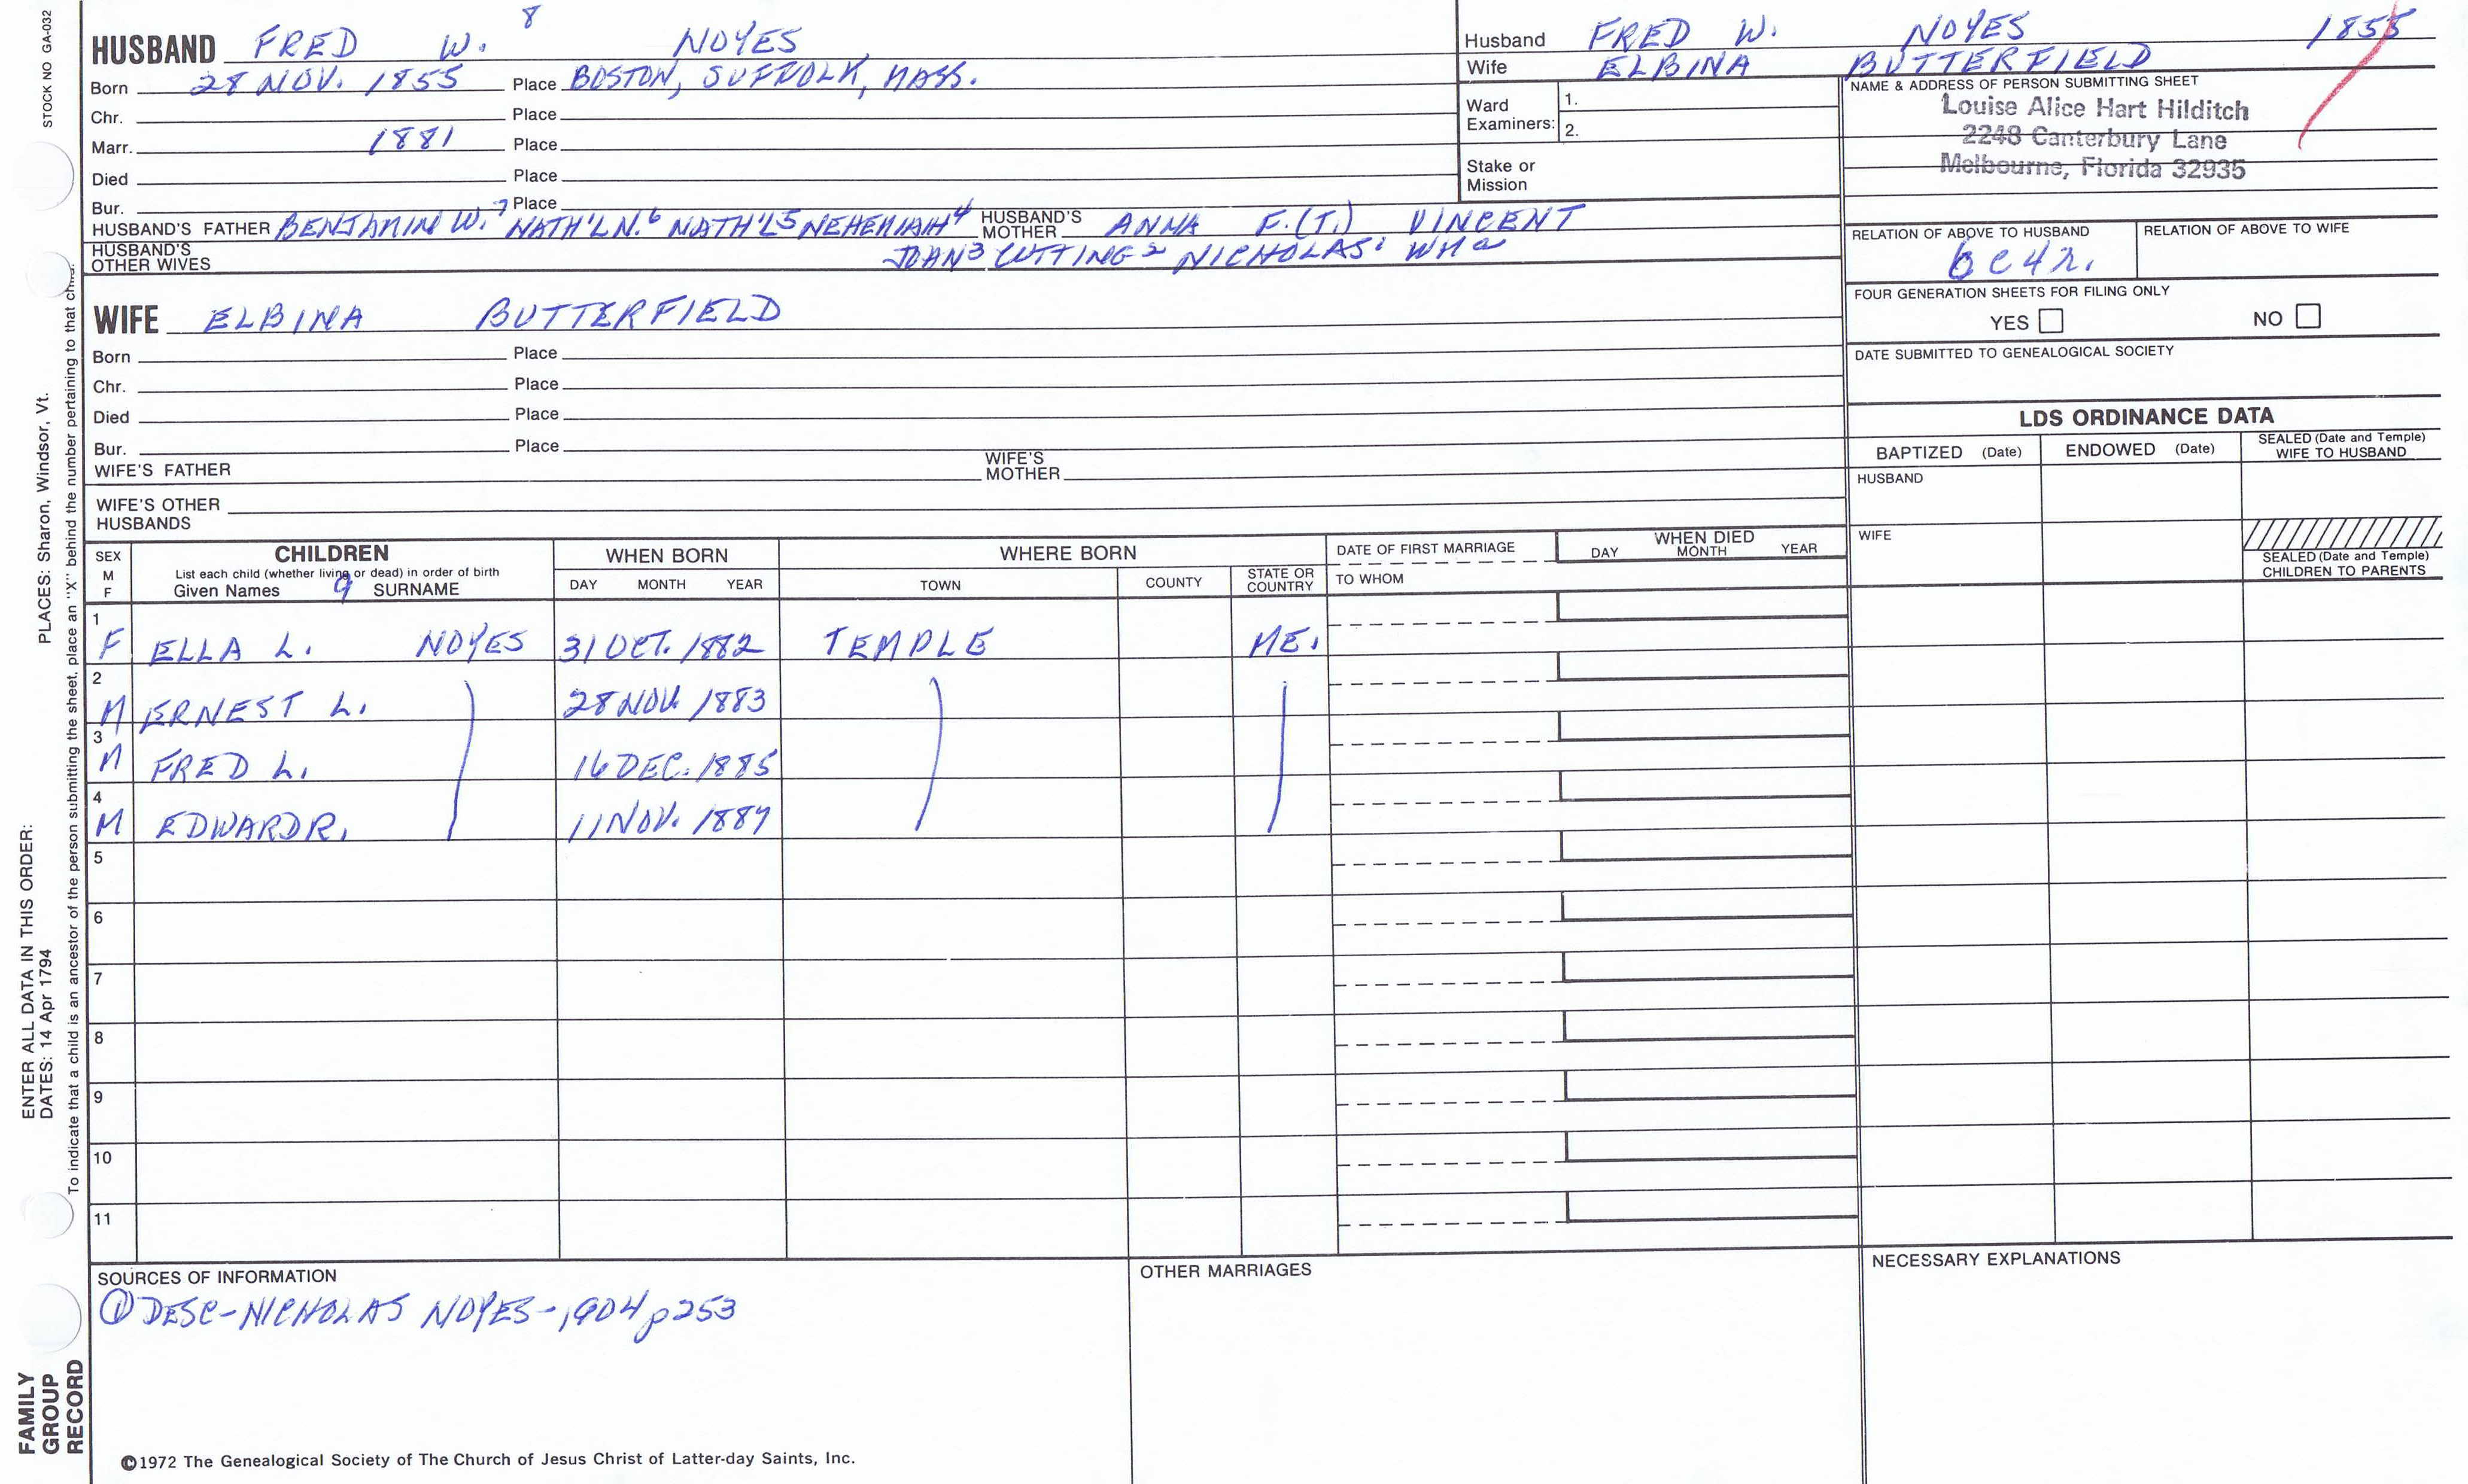 STOCK NO GA-032
HUSBAND FRED W. 8 NOYES
Born 28 NOV. 1855 Place BOSTON, SUFFOLK, MASS.
Chr. Place
Marr. 1881 Place
Died Place
Bur. Place
HUSBAND'S FATHER BENJAMIN W.7 NATH'L N.6 NATH'L5 NEHEMIAH4 HUSBAND'S MOTHER ANNA F.(T.) VINCENT
HUSBAND'S OTHER WIVES JOHN3 CUTTING2 NICHOLAS1 Wm a
Husband FRED W. NOYES 1855
Wife ELBINA BUTTERFIELD
Ward Examiners: 1.
2.
Stake or Mission
NAME & ADDRESS OF PERSON SUBMITTING SHEET
Louise Alice Hart Hilditch
2248 Canterbury Lane
Melbourne, Florida 32935
RELATION OF ABOVE TO HUSBAND RELATION OF ABOVE TO WIFE
6c4r.
FOUR GENERATION SHEETS FOR FILING ONLY
YES NO
DATE SUBMITTED TO GENEALOGICAL SOCIETY
WIFE ELBINA BUTTERFIELD
Born Place
Chr. Place
Died Place
Bur. Place
WIFE'S FATHER WIFE'S MOTHER
WIFE'S OTHER HUSBANDS
LDS ORDINANCE DATA
BAPTIZED (Date) ENDOWED (Date) SEALED (Date and Temple) WIFE TO HUSBAND
HUSBAND
WIFE
SEALED (Date and Temple) CHILDREN TO PARENTS
SEX M F
CHILDREN
List each child (whether living or dead) in order of birth
Given Names 9 SURNAME
WHEN BORN
DAY MONTH YEAR
WHERE BORN
TOWN COUNTY STATE OR COUNTRY
DATE OF FIRST MARRIAGE
TO WHOM
WHEN DIED
DAY MONTH YEAR
1 F ELLA L. NOYES 31 OCT. 1882 TEMPLE ME.
2 M ERNEST L. 28 NOV. 1883
3 M FRED L. 16 DEC. 1885
4 M EDWARD R. 11 NOV. 1887
5
6
7
8
9
10
11
SOURCES OF INFORMATION
① DESC-NICHOLAS NOYES-1904 p253
OTHER MARRIAGES
NECESSARY EXPLANATIONS
©1972 The Genealogical Society of The Church of Jesus Christ of Latter-day Saints, Inc.
FAMILY
GROUP
RECORD
ENTER ALL DATA IN THIS ORDER:
DATES: 14 Apr 1794
PLACES: Sharon, Windsor, Vt.
To indicate that a child is an ancestor of the person submitting the sheet, place an "X" behind the number pertaining to that child.